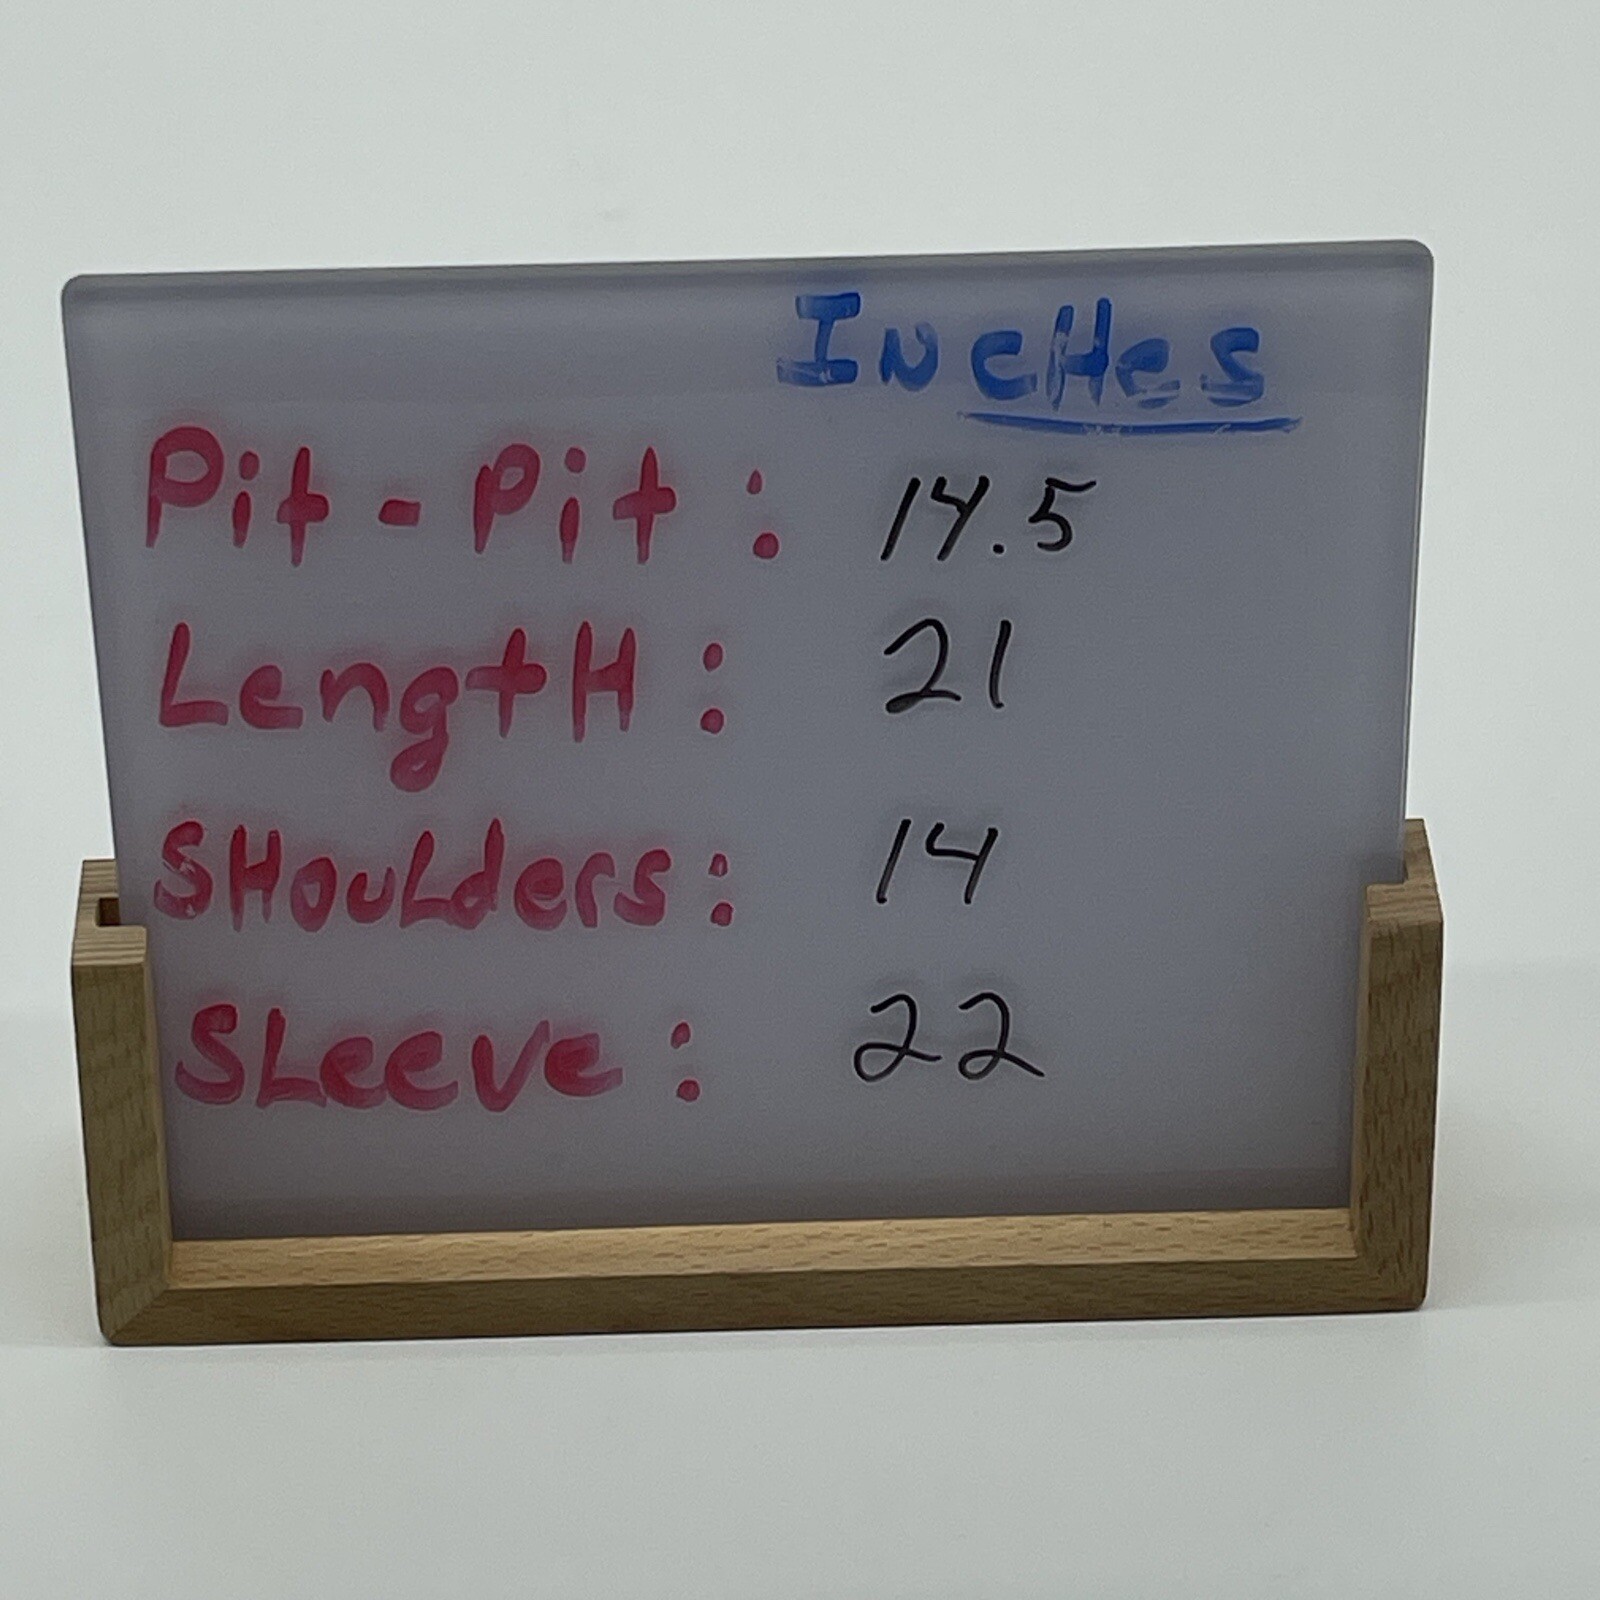 IncHes
Pit - Pit : 14.5
LengtH : 21
SHouLders: 14
SLeeve : 22